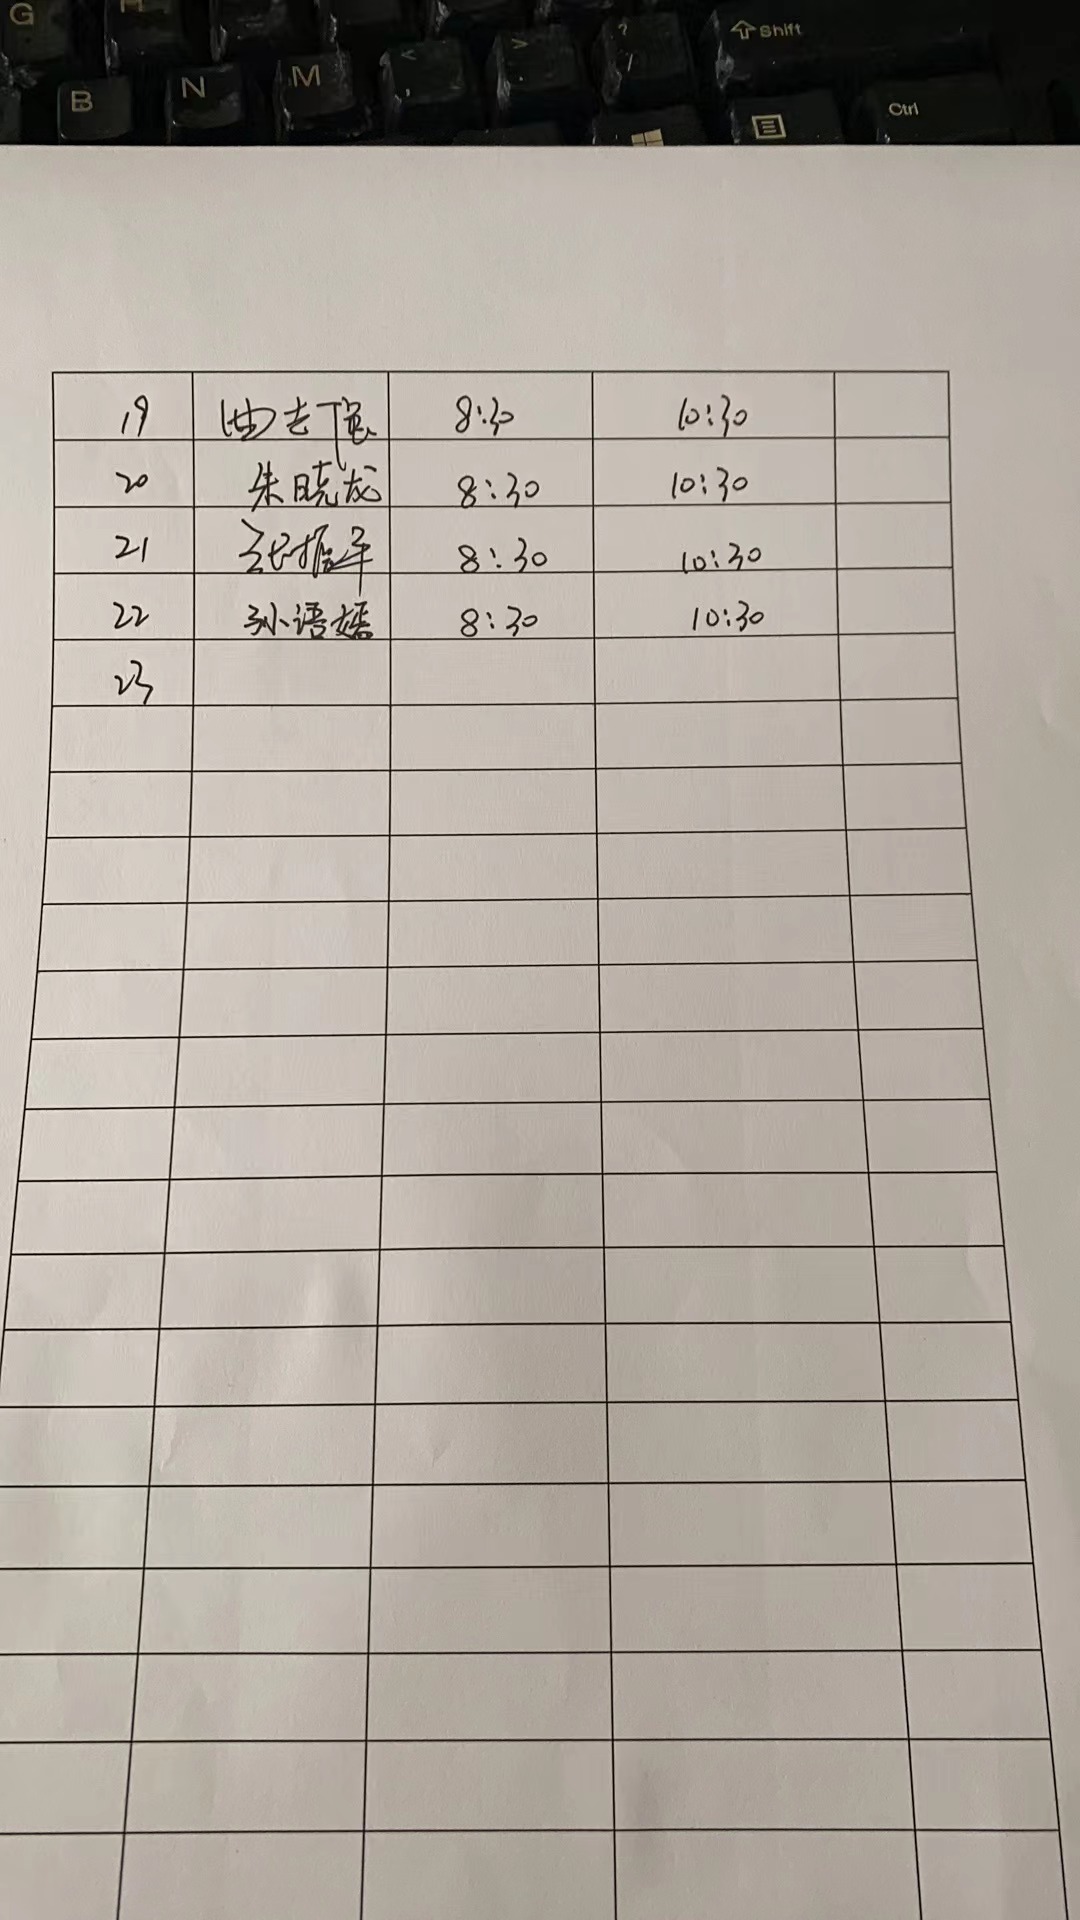 G H
B N M < , > . ? / Shift
Ctrl
19 8:30 10:30
20 朱晓龙 8:30 10:30
21 8:30 10:30
22 孙语嫣 8:30 10:30
23